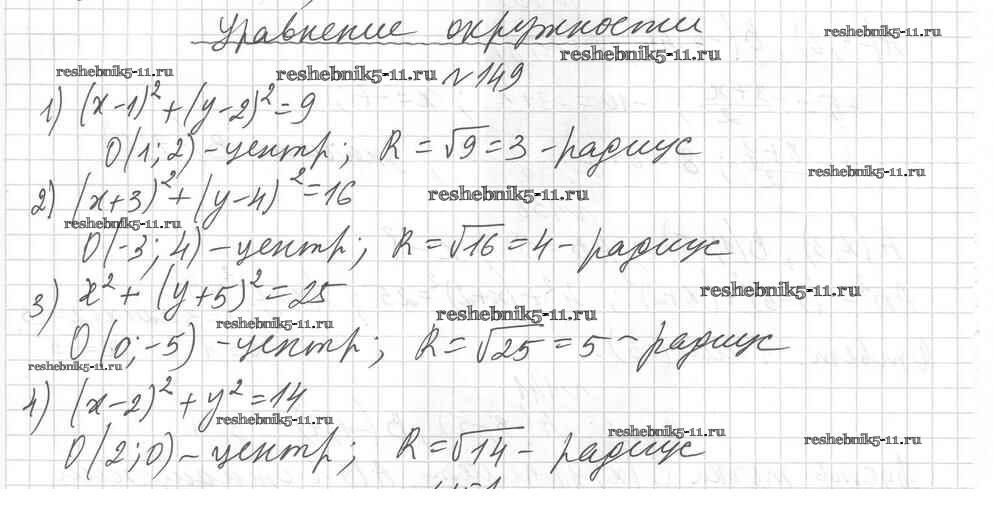 Уравнение окружности
reshebnik5-11.ru
reshebnik5-11.ru
reshebnik5-11.ru reshebnik5-11.ru №149
1) (x-1)²+(y-2)²=9
O(1; 2) - центр; R = √9 = 3 - радиус
reshebnik5-11.ru
2) (x+3)²+(y-4)²=16 reshebnik5-11.ru
reshebnik5-11.ru
O(-3; 4) - центр; R = √16 = 4 - радиус
3) x² + (y+5)² = 25 reshebnik5-11.ru
reshebnik5-11.ru reshebnik5-11.ru
O(0; -5) - центр; R = √25 = 5 - радиус
reshebnik5-11.ru
4) (x-2)² + y² = 14
reshebnik5-11.ru
reshebnik5-11.ru reshebnik5-11.ru
O(2; 0) - центр; R = √14 - радиус